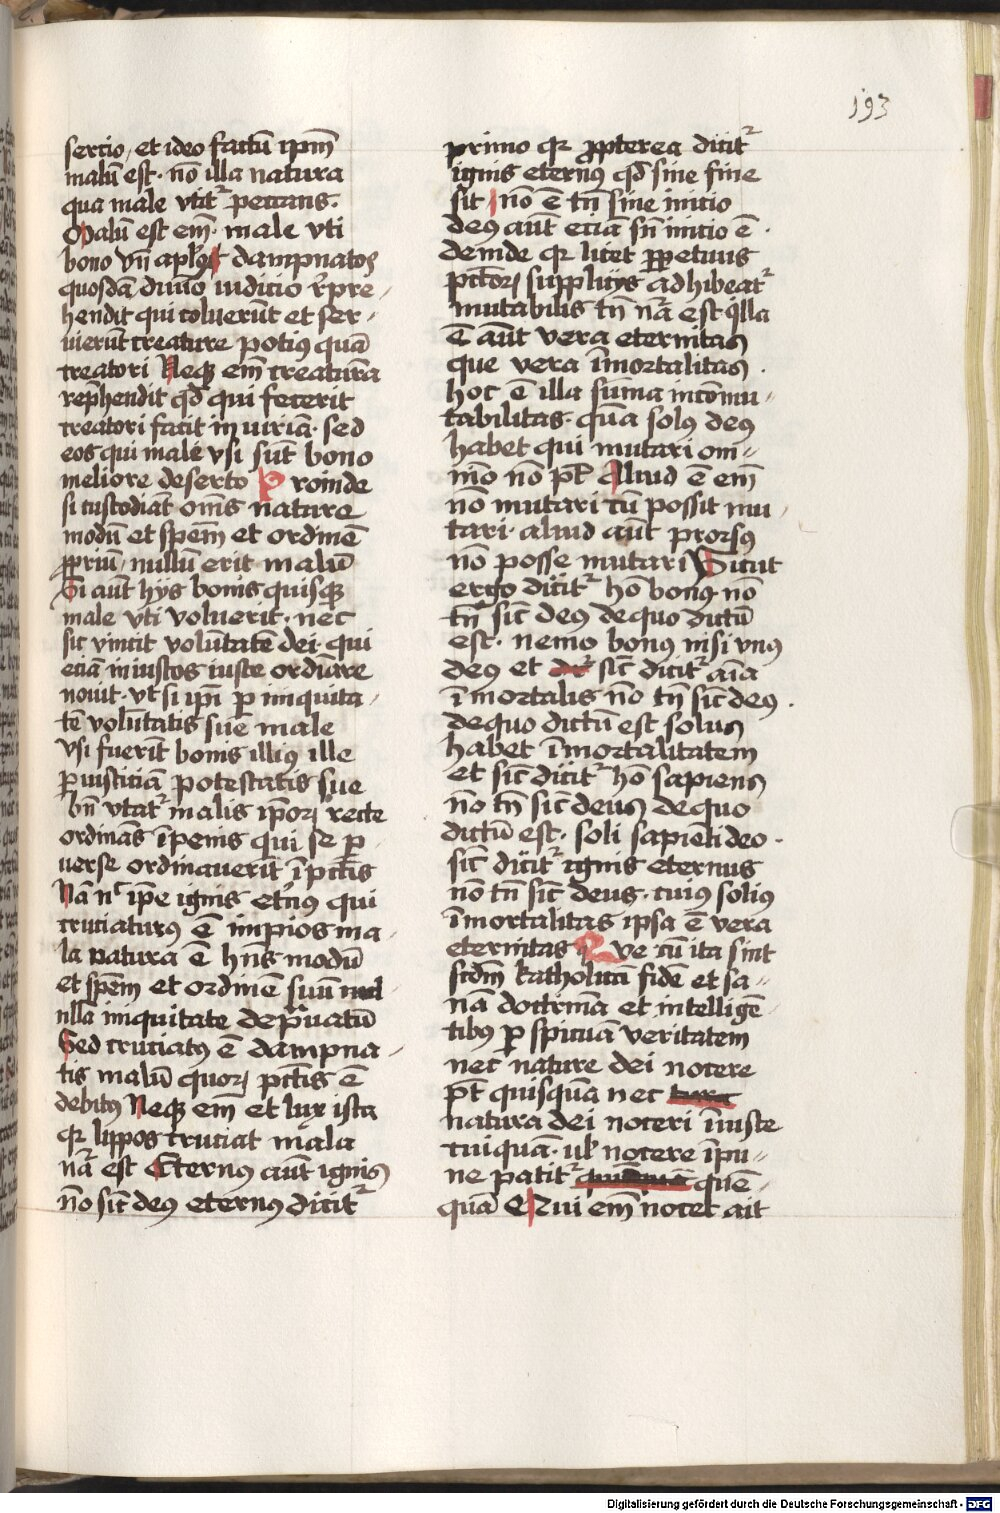 193
sercio, et ideo factū ipm̄
malū est. nō illa natura
qua male vtit᷑ peccans.
Malū est em̄. male vti
bono Vn̄ apl'us dampnatos
quosdā diuīo iudicio rp̄re-
hendit qui coluerūt et ser-
uierūt creature potius quā
creatori Neqꝫ em̄ creaturā
rep̄hendit qd̄ qui fecerit
creatori facit iniuriā. sed
eos qui male vsi sūt bono
meliore deserto Proinde
si custodiāt om̄s nature
modū et spēm et ordinē
ꝓpriū, nullū erit malū
Si aūt hijs bonis quisqꝫ
male vti voluerit. nec
sic vincit volūtatē dei. qui
eciā iniustos iuste ordīare
nouit. vt si ip̄i ꝑ iniquita-
tē volūtatis sue male
vsi fuerīt bonis illiꝰ ille
ꝑ iusticiā potestatis sue
bn̄ vtat᷑ malis ip̄oꝝ recte
ordinās ī penis qui se ꝑ
uerse ordinauerīt ī pctīs
Nā nc̄ ip̄e ignis et'nus qui
cruciaturꝰ ē impios ma-
la natura ē hn̄s modū
et spēm et ordinē suū
nlla iniquitate deprauatū
Sed cruciatꝰ ē dampna-
tis malū quoꝝ pctīs ē
debitꝰ Neqꝫ em̄ et lux ista
qꝛ lippos cruciat mala
nā est Eternus aūt ignis
nō sic̄ deꝰ eternꝰ dicit᷑
primo qꝛ ꝓpterea dicit᷑
ignis eternꝰ qd̄ sine fine
sit, nō ē tn̄ sine inicio
deꝰ aūt eciā sn̄ inicio ē.
deinde qꝛ licet ꝑpetuus
pctōꝝ supplicijs adhibeat᷑
mutabilis tn̄ nā est qͥlla
ē aūt vera eternitas
que vera īmortalitas.
hoc ē illa suma incōmu-
tabilitas. quā solꝰ deꝰ
habet qui mutari om-
nīo nō pt̄ Aliud ē em̄
nō mutari cū possit mu
tari. aliud aūt prorsꝰ
nō posse mutari Sicut
ergo dicit᷑ hō bonꝰ nō
tn̄ sic̄ deꝰ dequo dictū
est. nemo bonus nisi vnꝰ
deꝰ et sic̄ dicit᷑ aīa
īmortalis nō tn̄ sic̄ deꝰ.
dequo dictū est solus
habet īmortalitatem
et sic̄ dicit᷑ hō sapiens
nō tn̄ sic̄ deus dequo
dictū est. soli sapiēti deo.
sic̄ dicit᷑ ignis eternus
nō tn̄ sic̄ deus. cuiꝰ soliꝰ
īmortalitas ipsa ē vera
eternitas Que cū ita sint
scdm̄ katholicā fidē et sa-
nā doctrinā et intelligē-
tibꝰ ꝑspicuā veritatem
nec nature dei nocere
pt̄ quisquā nec
natura dei noceri īiuste
cuiquā. ul' nocere īpu-
ne patit᷑ quē-
quā Qui em̄ nocet ait
Digitalisierung gefördert durch die Deutsche Forschungsgemeinschaft - DFG